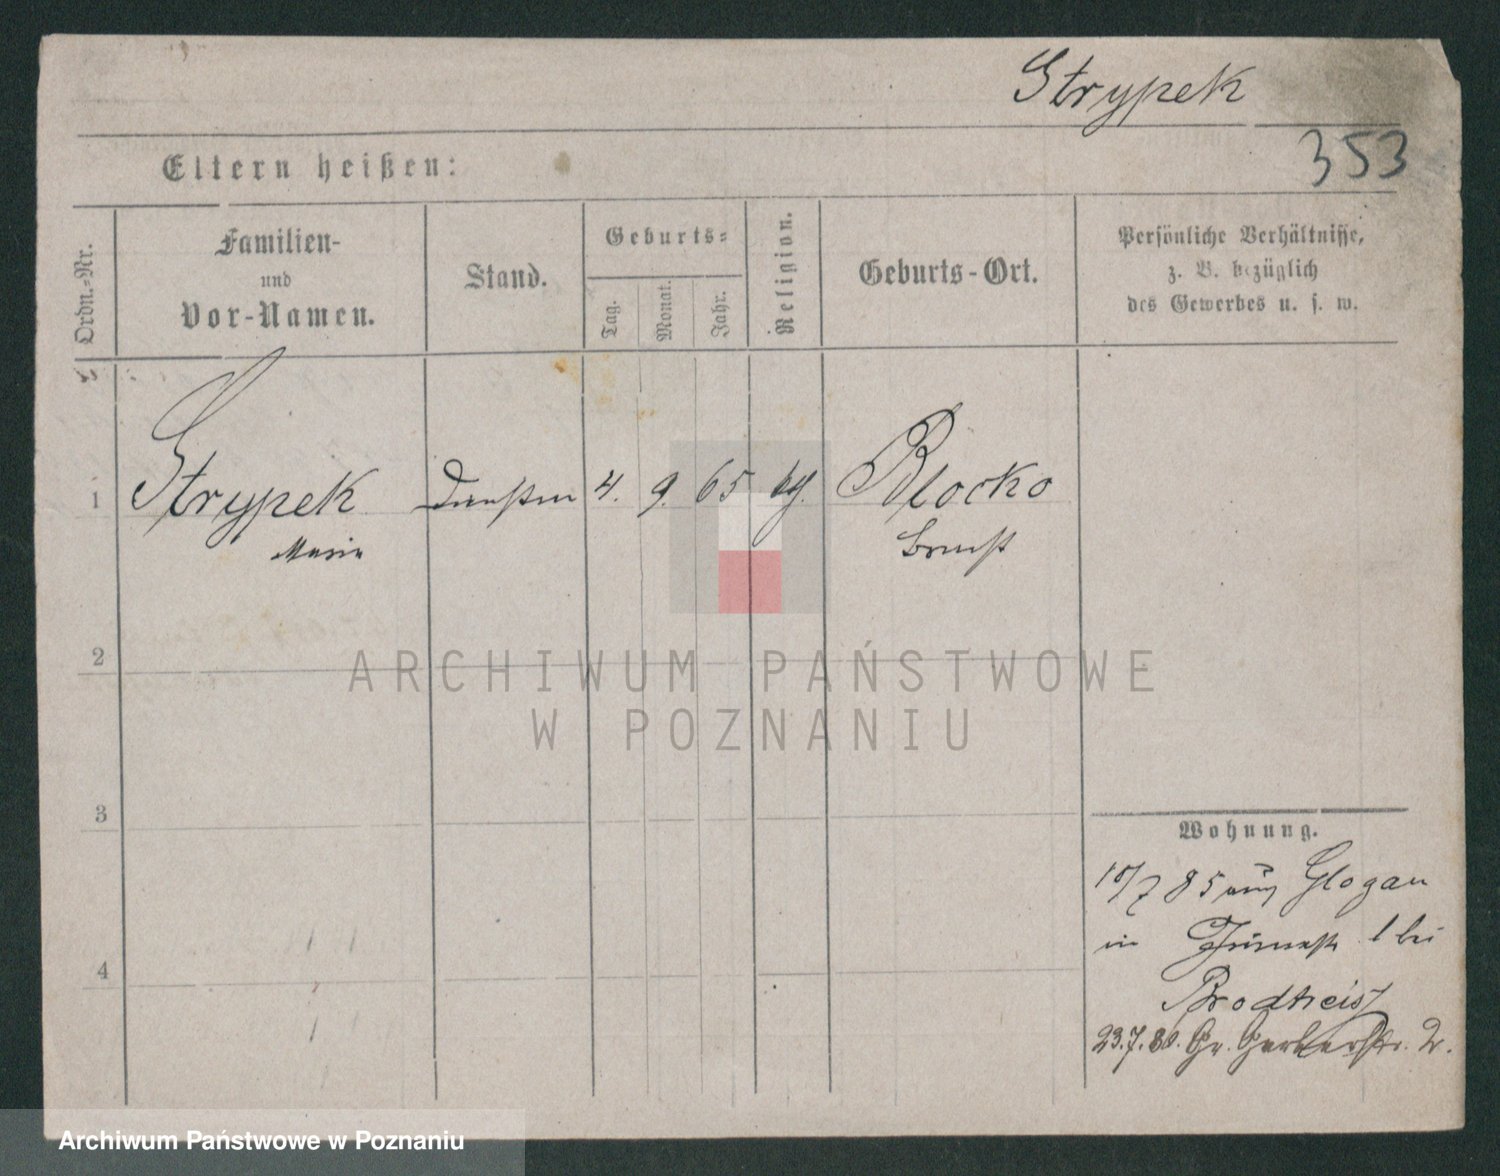 Strypek
353
Eltern heißen:
Ordn.-Nr.
Familien-
und
Vor-Namen.
Stand.
Geburts-
Tag.
Monat.
Jahr.
Religion.
Geburts-Ort.
Persönliche Verhältnisse,
z. B. bezüglich
des Gewerbes u. s. w.
1 Strypek 4. 9. 65 Blocko
Marie
2
ARCHIWUM PAŃSTWOWE
W POZNANIU
3
4
Wohnung.
10/7 85 aus Glogau
in 1 bei
23.7. Gr. Gerberstr. 2.
Archiwum Państwowe w Poznaniu